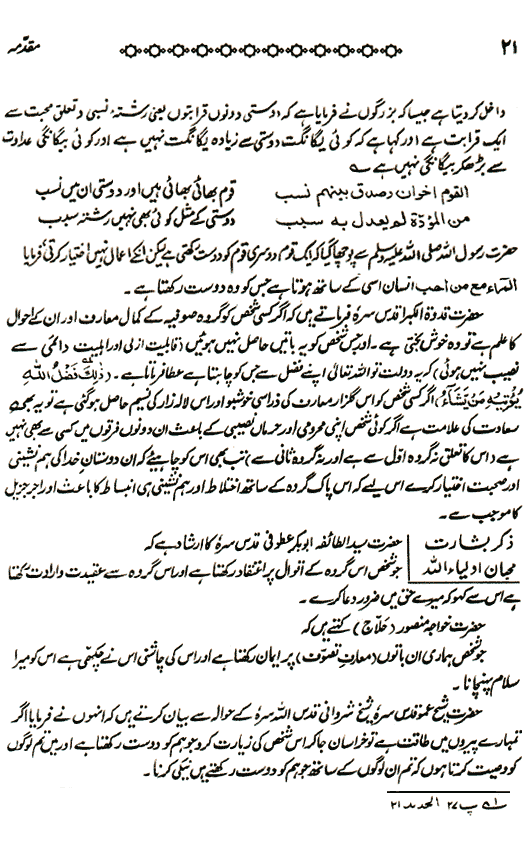 ۲۱ مقدّمہ
داخل کر دیتا ہے جیسا کہ بزرگوں نے فرمایا ہے کہ دوستی دونوں قرابتوں یعنی رشتۂ نسبی و تعلق محبت سے
ایک قرابت ہے اور کہا ہے کہ کوئی یگانگت دوستی سے زیادہ یگانگت نہیں ہے اور کوئی بیگانگی عداوت
سے بڑھکر بیگانگی نہیں ہے ؎
القوم اخوان وصدق بینھم نسب قوم بھائی بھائی ہیں اور دوستی ان میں نسب
من المؤدّة لم یعدل بہ سبب دوستی کے مثل کوئی بھی نہیں رشتہ سبب
حضرت رسول اللہ صلی اللہ علیہ وسلم سے پوچھا گیا کہ ایک قوم دوسری قوم کو دوست رکھتی ہے لیکن انکے اعمال نہیں اختیار کرتی فرمایا
المراء مع من احب انسان اسی کے ساتھ ہوتا ہے جس کو وہ دوست رکھتا ہے ۔
حضرت قدوۃ الکبرا قدس سرہٗ فرماتے ہیں کہ اگر کسی شخص کو گروہ صوفیہ کے کمال معارف اور ان کے احوال
کا علم ہے تو وہ خوش بختی ہے ۔ اور جس شخص کو یہ باتیں حاصل نہیں ہوئیں (قابلیت ازلی اور اہلیت دائمی سے
نصیب نہیں ہوئی) کہ یہ دولت تو اللہ تعالیٰ اپنے فضل سے جس کو چاہتا ہے عطا فرماتا ہے ۔ (ذٰلِکَ فَضْلُ اللّٰہِ
یُؤْتِیْہِ مَنْ یَّشَآءُ) اگر کسی شخص کو اس گلزار معارف کی ذرا سی خوشبو اور اس لالہ زار کی نسیم حاصل ہو گئی ہے تو یہ بھی
سعادت کی علامت ہے اگر کوئی شخص اپنی محرومی اور حرماں نصیبی کے باعث ان دونوں فرقوں میں کسی سے بھی نہیں
ہے (اس کا تعلق نہ گروہ اوّل سے ہے اور نہ گروہ ثانی سے) تب بھی اس کو چاہیئے کہ ان دوستانِ خدا کی ہم نشینی
اور صحبت اختیار کرے اس لیے کہ اس پاک گروہ کے ساتھ اختلاط اور ہم نشینی ہی انبساط کا باعث اور اجر جزیل
کا موجب ہے ۔
ذکر بشارت حضرت سید الطائفہ ابوبکر عطوفی قدس سرہٗ کا ارشاد ہے کہ
محبان اولیاء اللہ جو شخص اس گروہ کے اقوال پر اعتقاد رکھتا ہے اور اس گروہ سے عقیدت و ارادت رکھتا
ہے اس سے کہو کہ میرے حق میں ضرور دعا کرے ۔
حضرت خواجہ منصور (حلّاج) کہتے ہیں کہ
جو شخص ہماری ان باتوں (معارفِ تصوّف) پر ایمان رکھتا ہے اور اس کی چاشنی اس نے چکھی ہے اس کو میرا
سلام پہنچانا ۔
حضرت شیخ عمو قدس سرہٗ شیخ شروانی قدس اللہ سرہٗ کے حوالہ سے بیان کرتے ہیں کہ انہوں نے فرمایا اگر
تمہارے پیروں میں طاقت ہے تو خراسان جا کر اس شخص کی زیارت کرو جو ہم کو دوست رکھتا ہے اور میں تم لوگوں
کو وصیت کرتا ہوں کہ تم ان لوگوں کے ساتھ جو ہم کو دوست رکھتے ہیں نیکی کرنا ۔
۱؎ پ ۲۷ الحدید ۲۱